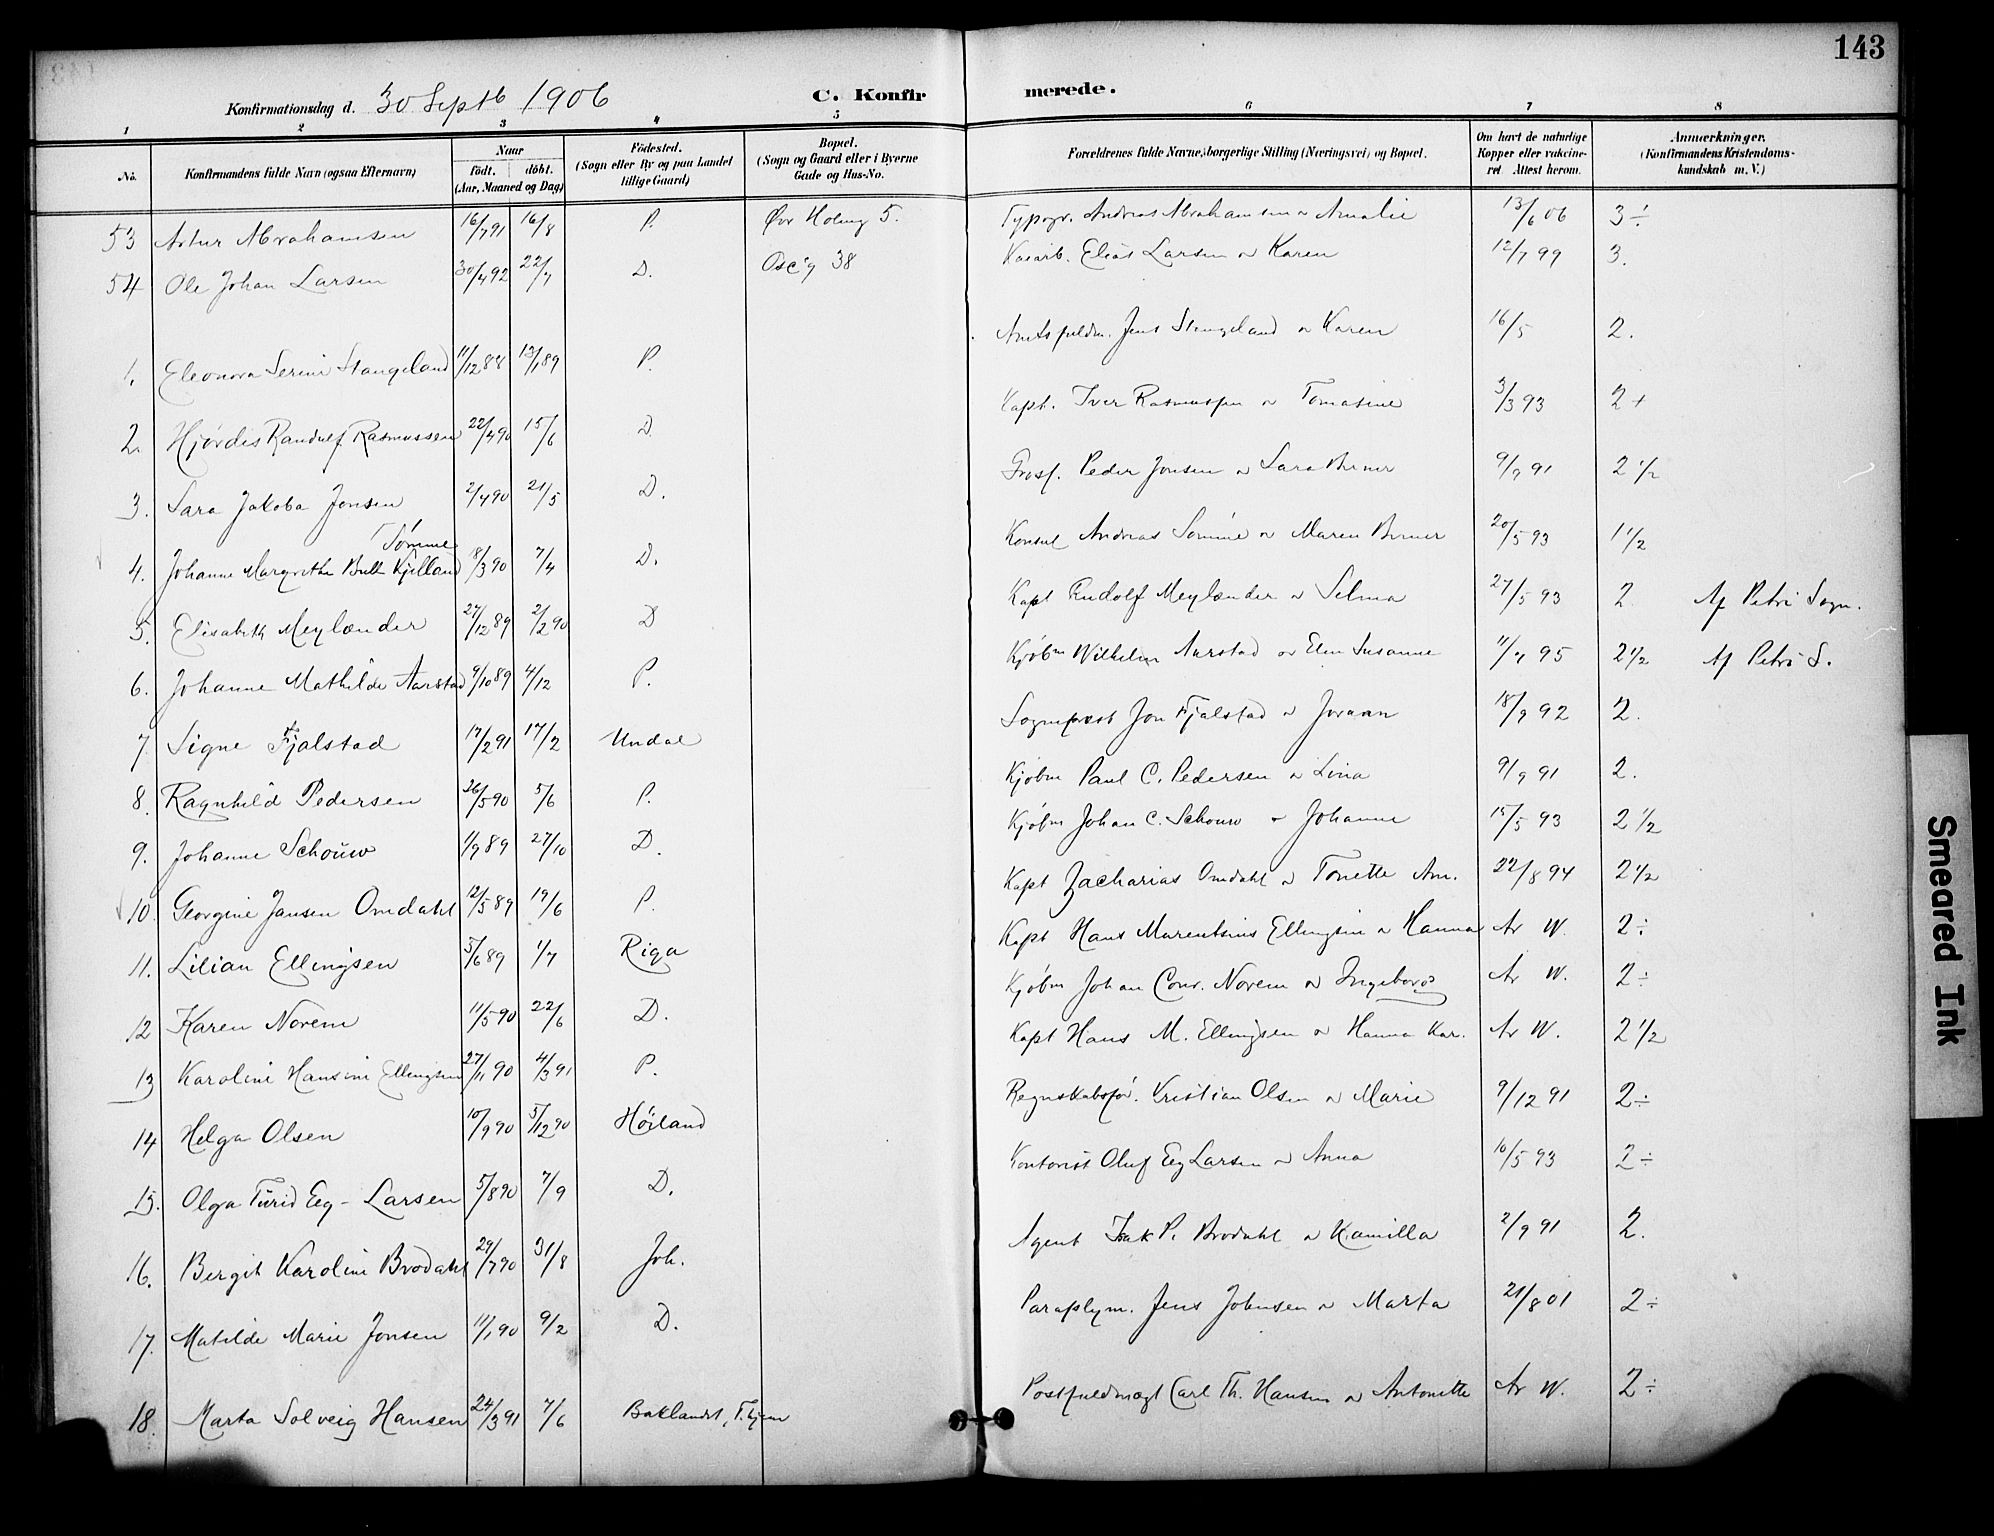 143
Konfirmationsdag d. 30 Septb 1906 C. Konfirmerede.
1 2 3 4 5 6 7 8
No. Konfirmandens fulde Navn (ogsaa Efternavn) Naar født. døbt. (Aar, Maaned og Dag) Fødested. (Sogn eller By og paa Landet tillige Gaard) Bopæl. (Sogn og Gaard eller i Byerne Gade og Hus-No. Forældrenes fulde Navne, borgerlige Stilling (Næringsvei) og Bopæl. Om havt de naturlige Kopper eller vakcineret Attest herom. Anmærkninger. (Konfirmandens Kristendomskundskab m. V.)
53 Artur Abrahamsen 16/7 91 16/8 P. Øvr Holmg 5. Typogr. Andreas Abrahamsen & Amalie 13/6 06 3 ÷
54 Ole Johan Larsen 30/4 92 22/7 D. Osc'g 38 Elias Larsen & Karen 12/7 99 3.
1. Eleonora Serine Stangeland 11/12 88 13/1 89 P. Amtsfuldm. Jens Stangeland & Karen 16/5 2.
2. Hjørdis Randulf Rasmussen 22/4 90 15/6 D. Kapt. Iver Rasmussen & Tomasine 3/3 93 2 +
3. Sara Jakoba Jonsen 2/4 90 21/5 D. Gross. Peder Jonsen & Sara Berner 9/9 91 2 1/2
4. Johanne Margrethe Bull Kjelland Sømme 8/3 90 7/4 D. Konsul Andreas Sømme & Maren Berner 20/5 93 1 1/2
5. Elisabeth Meylænder 27/12 89 2/2 90 D Kapt Rudolf Meylænder & Selma 27/5 93 2 Af Petri Sogn.
6. Johanne Mathilde Aarstad 9/10 89 4/12 P. Kjøbm Wilhelm Aarstad & Elen Susanne 11/7 95 2 1/2 Af Petri S.
7. Signe Fjalstad 17/2 91 17/2 Undal Sogneprest Jon Fjalstad & Joraan 18/9 92 2.
8. Ragnhild Pedersen 26/5 90 5/6 P. Kjøbm Paul C. Pedersen & Lina 9/9 91 2.
9. Johanne Schouw 1/9 89 27/10 D. Kjøbm Johan C. Schouw & Johanne 15/5 93 2 1/2
10. Georgine Jansen Omdahl 12/5 89 19/6 P. Kapt Zacharias Omdahl & Tonette Am. 22/8 94 2 1/2
11. Lilian Ellingsen 5/6 89 1/7 Riga Kapt Hans Marentsius Ellingsen & Hanna Ar W. 2 ÷
12 Karen Norem 11/5 90 22/6 D. Kjøbm Johan Conr. Norem & Ingeborg Ar W. 2 ÷
13 Karoline Hansine Ellingsen 27/11 90 4/3 91 P. Kapt Hans M. Ellingsen & Hanna Kar. Ar W. 2 1/2
14 Helga Olsen 10/9 90 5/12 90 Høiland Regnskabsfør. Kristian Olsen & Marie 9/12 91 2 ÷
15. Olga Turid Eeg - Larsen 5/8 90 7/9 D. Kontorist Oluf Eeg Larsen & Anna 10/5 93 2 ÷
16. Bergit Karoline Brodahl 29/7 90 31/8 Joh. Agent Isak P. Brodahl & Kamilla 2/9 91 2.
17. Matilde Marie Jonsen 11/1 90 9/2 D. Paraplym. Jens Johnsen & Marta 21/8 01 2 ÷
18. Marta Solveig Hansen 24/3 91 7/6 Baklandet, T.hjem Postfuldmægt Carl Th. Hansen & Antonette Ar W. 2 ÷
Smeared Ink